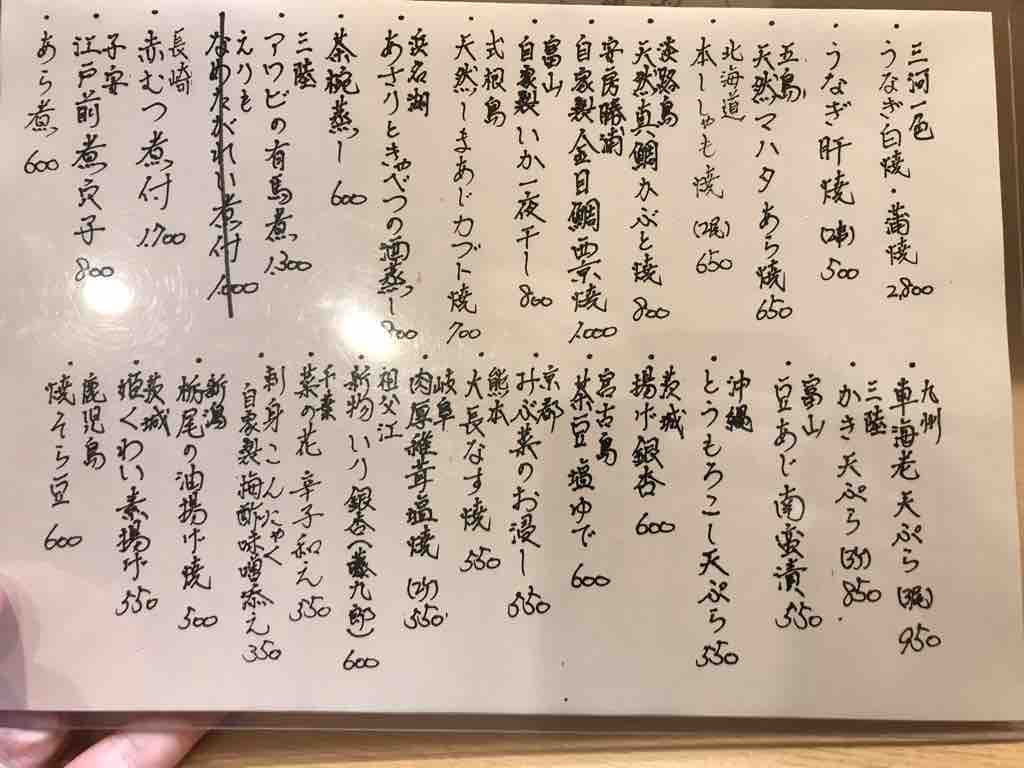 三河一色
うなぎ白焼・蒲焼 2,800
うなぎ肝焼 (2串) 500
五島
天然マハタあら焼 650
北海道
本ししゃも焼 (2尾) 650
淡路島
天然真鯛かぶと焼 800
安房勝浦
自家製金目鯛西京焼 1,000
富山
自家製いか一夜干し 800
式根島
天然しまあじカブト焼 700
浜名湖
あさりときゃべつの酒蒸し 800
茶椀蒸し 600
三陸
アワビの有馬煮 1,300
えりも
なめたがれい煮付
長崎
赤むつ煮付 1,700
子安
江戸前煮穴子 800
あら煮 600
九州
車海老天ぷら (3尾) 950
三陸
かき天ぷら (3ヶ) 850
富山
豆あじ南蛮漬 550
沖縄
とうもろこし天ぷら 550
茨城
揚げ銀杏 600
宮古島
茶豆塩ゆで 600
京都
みぶ菜のお浸し 550
熊本
大長なす焼 550
岐阜
肉厚椎茸塩焼 (2ヶ) 550
祖父江
新物いり銀杏(藤九郎) 600
千葉
菜の花辛子和え 550
刺身こんにゃく
自家製梅酢味噌添え 350
新潟
栃尾の油揚げ焼 500
茨城
姫くわい素揚げ 550
鹿児島
焼そら豆 600